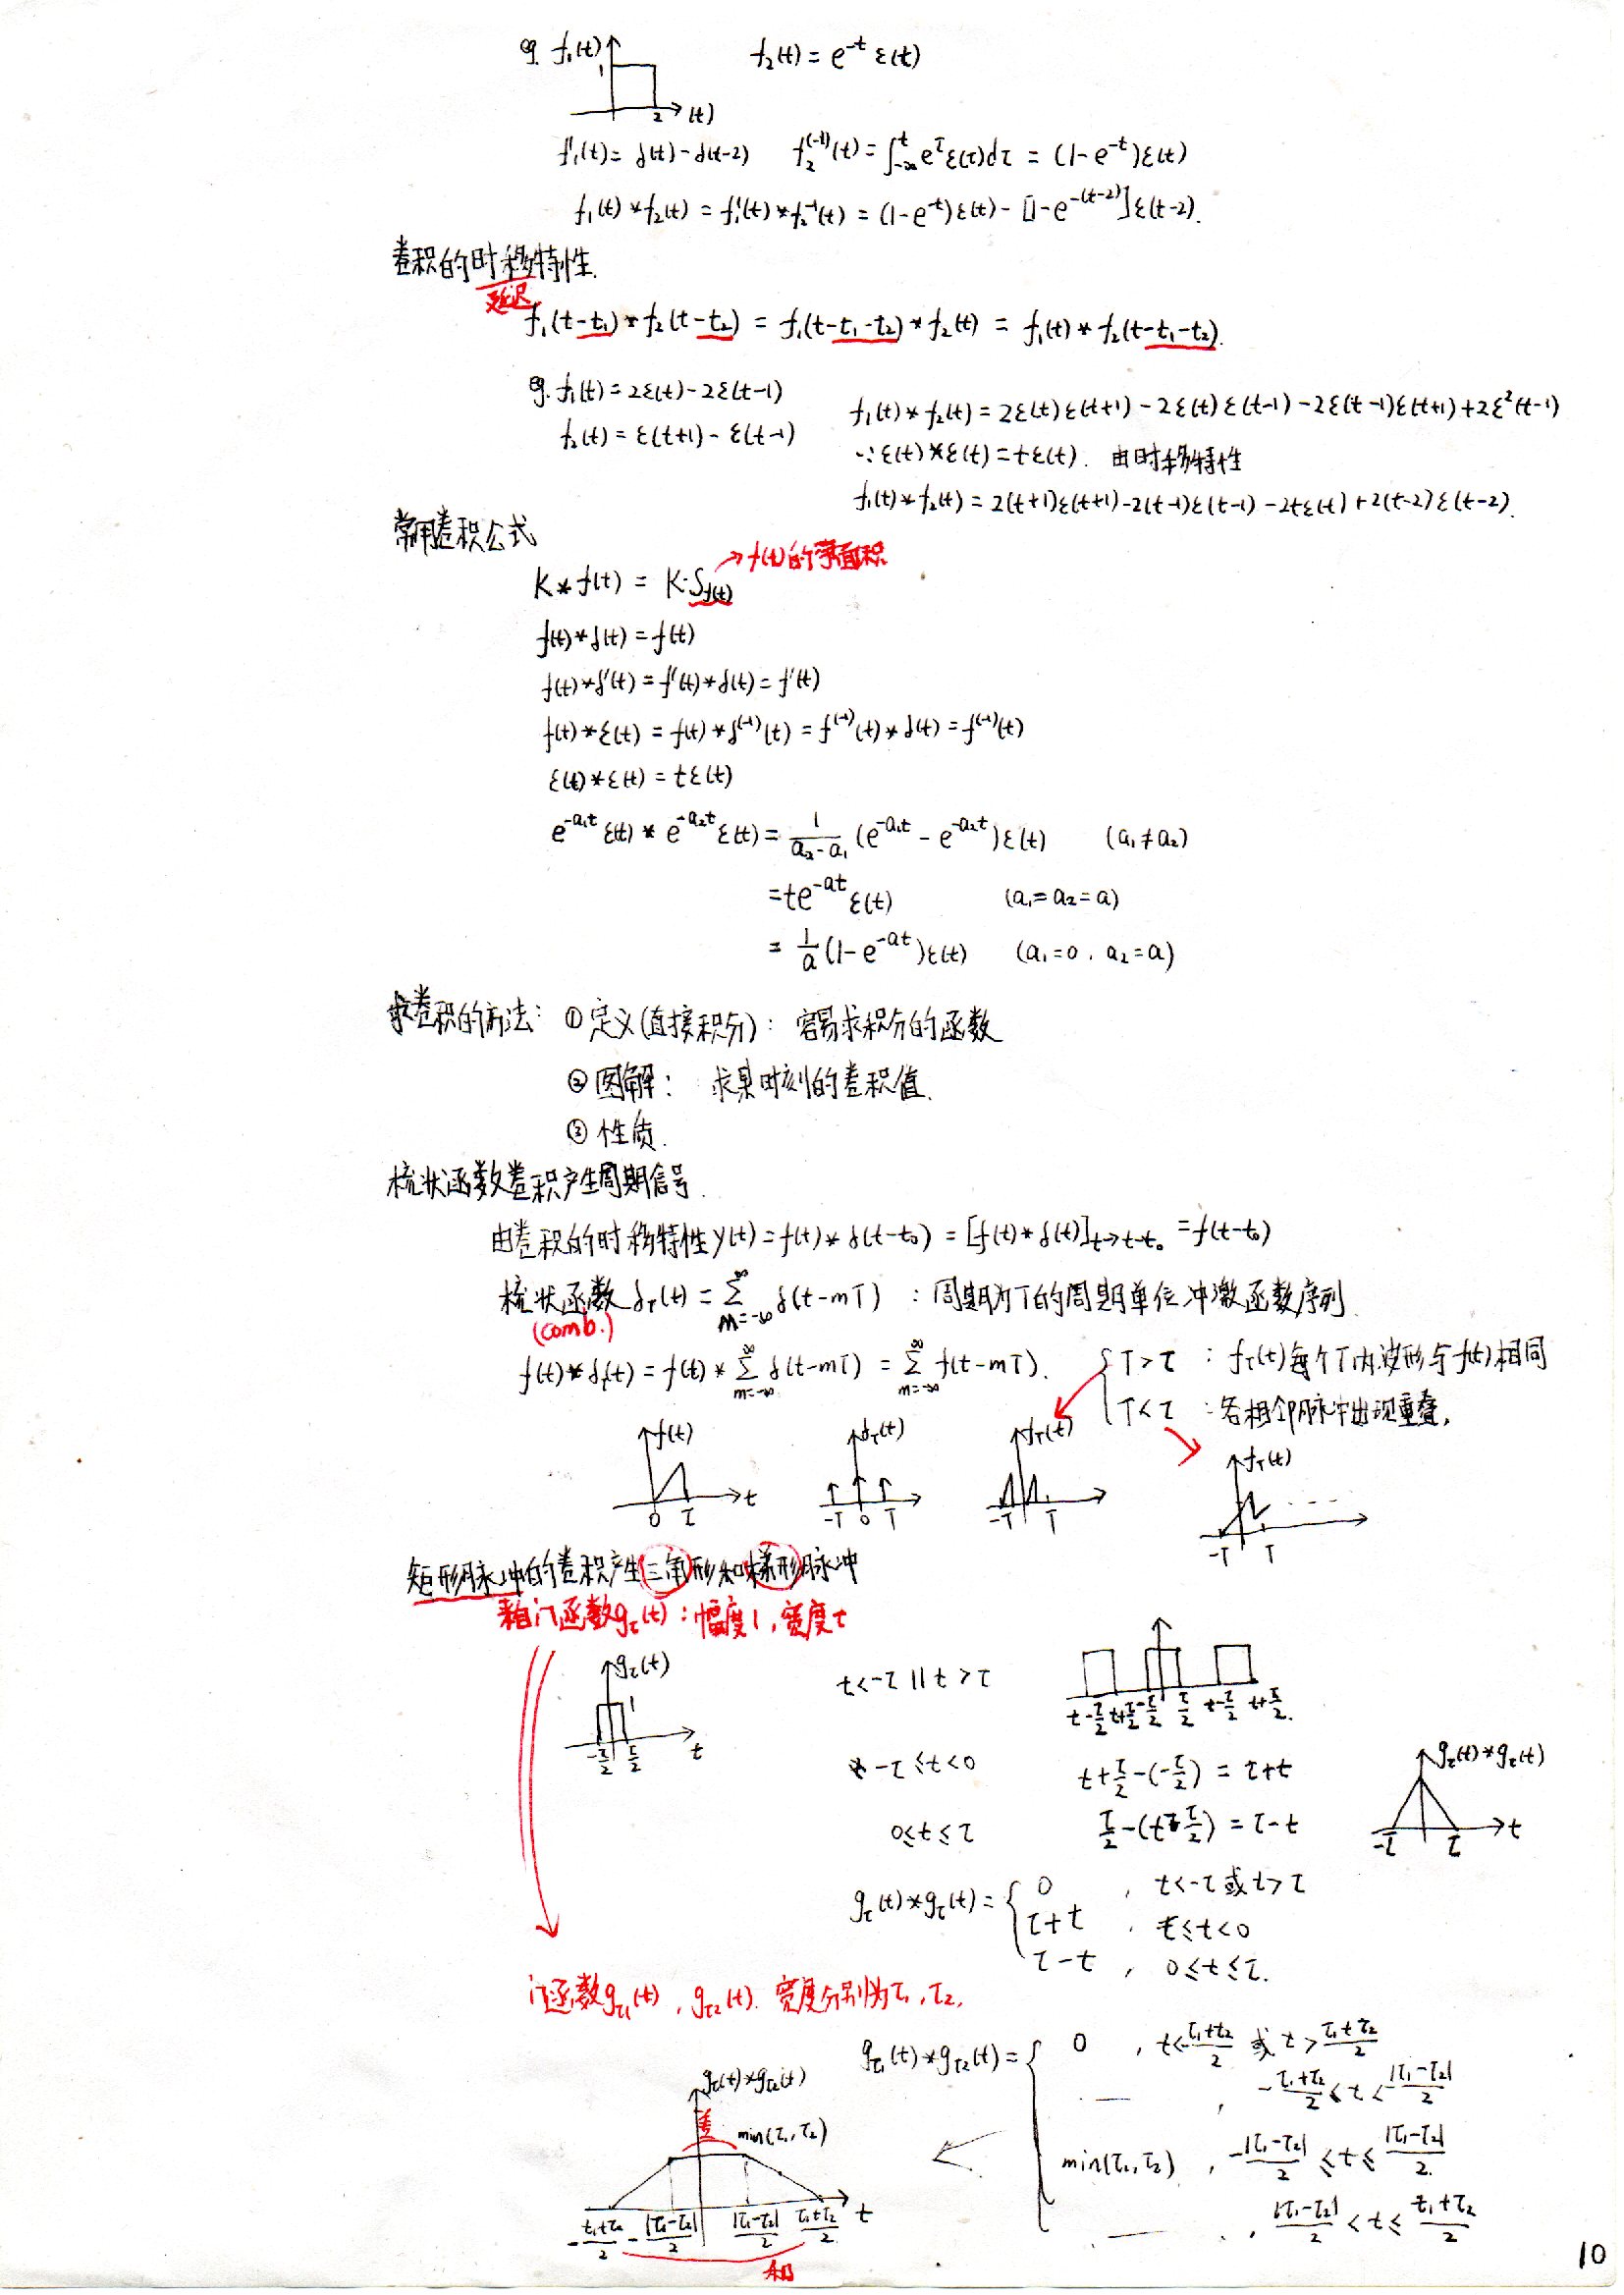 eg. f₁(t) f₂(t) = e^{-t} ε(t)
1
2 (t)
f₁'(t) = δ(t) - δ(t-2) f₂^{(-1)}(t) = ∫_{-∞}^{t} e^{τ} ε(τ)dτ = (1-e^{-t})ε(t)
f₁(t) * f₂(t) = f₁'(t) * f₂^{-1}(t) = (1-e^{-t})ε(t) - [1-e^{-(t-2)}]ε(t-2).
卷积的时移特性.
延迟
f₁(t-t₁) * f₂(t-t₂) = f₁(t-t₁-t₂) * f₂(t) = f₁(t) * f₂(t-t₁-t₂).
eg. f₁(t) = 2ε(t) - 2ε(t-1)
f₂(t) = ε(t+1) - ε(t-1)
f₁(t) * f₂(t) = 2ε(t)ε(t+1) - 2ε(t)ε(t-1) - 2ε(t-1)ε(t+1) + 2ε²(t-1)
∵ ε(t) * ε(t) = tε(t). 由时移特性
f₁(t) * f₂(t) = 2(t+1)ε(t+1) - 2(t-1)ε(t-1) - 2tε(t) + 2(t-2)ε(t-2).
常用卷积公式
→ f(t)的净面积
K * f(t) = K·S_{f(t)}
f(t) * δ(t) = f(t)
f(t) * δ'(t) = f'(t) * δ(t) = f'(t)
f(t) * ε(t) = f(t) * δ^{(-1)}(t) = f^{(-1)}(t) * δ(t) = f^{(-1)}(t)
ε(t) * ε(t) = tε(t)
e^{-a₁t} ε(t) * e^{-a₂t} ε(t) = \frac{1}{a₂-a₁} (e^{-a₁t} - e^{-a₂t})ε(t) (a₁≠a₂)
= te^{-at} ε(t) (a₁=a₂=a)
= \frac{1}{a} (1-e^{-at})ε(t) (a₁=0, a₂=a)
求卷积的方法: ① 定义(直接积分): 容易求积分的函数
② 图解: 求某时刻的卷积值.
③ 性质.
梳状函数卷积产生周期信号.
由卷积的时移特性 y(t) = f(t) * δ(t-t₀) = [f(t) * δ(t)]_{t→t-t₀} = f(t-t₀)
梳状函数 δ_T(t) = \sum_{m=-∞}^{∞} δ(t-mT) : 周期为T的周期单位冲激函数序列.
(comb.)
f(t) * δ_T(t) = f(t) * \sum_{m=-∞}^{∞} δ(t-mT) = \sum_{m=-∞}^{∞} f(t-mT).
{ T > τ : f_T(t)每个T内波形与f(t)相同
T < τ : 各相邻脉冲出现重叠.
f(t) δ_T(t) f_T(t) f_T(t)
0 τ t
-T 0 T
-T T
-T T
矩形脉冲的卷积产生三角形和梯形脉冲
门函数g_τ(t): 幅度1, 宽度τ
g_τ(t)
1
-\frac{τ}{2} \frac{τ}{2} t
t<-τ || t>τ
t-\frac{τ}{2} t+\frac{τ}{2} -\frac{τ}{2} \frac{τ}{2} t-\frac{τ}{2} t+\frac{τ}{2}.
-τ ≤ t < 0 t+\frac{τ}{2}-(-\frac{τ}{2}) = τ+t
0 ≤ t ≤ τ \frac{τ}{2}-(t-\frac{τ}{2}) = τ-t
g_τ(t) * g_τ(t)
-τ τ t
g_τ(t) * g_τ(t) = { 0 , t<-τ 或 t>τ
τ+t , -τ ≤ t < 0
τ-t , 0 ≤ t ≤ τ.
门函数g_{τ1}(t), g_{τ2}(t). 宽度分别为τ₁, τ₂.
g_{τ1}(t) * g_{τ2}(t) = { 0 , t<-\frac{τ₁+τ₂}{2} 或 t>\frac{τ₁+τ₂}{2}
— , -\frac{τ₁+τ₂}{2} ≤ t < -\frac{|τ₁-τ₂|}{2}
min(τ₁,τ₂) , -\frac{|τ₁-τ₂|}{2} ≤ t ≤ \frac{|τ₁-τ₂|}{2}.
— , \frac{|τ₁-τ₂|}{2} < t ≤ \frac{τ₁+τ₂}{2}
g_{τ1}(t) * g_{τ2}(t)
差
min(τ₁,τ₂)
-\frac{τ₁+τ₂}{2} -\frac{|τ₁-τ₂|}{2} \frac{|τ₁-τ₂|}{2} \frac{τ₁+τ₂}{2} t
和
10